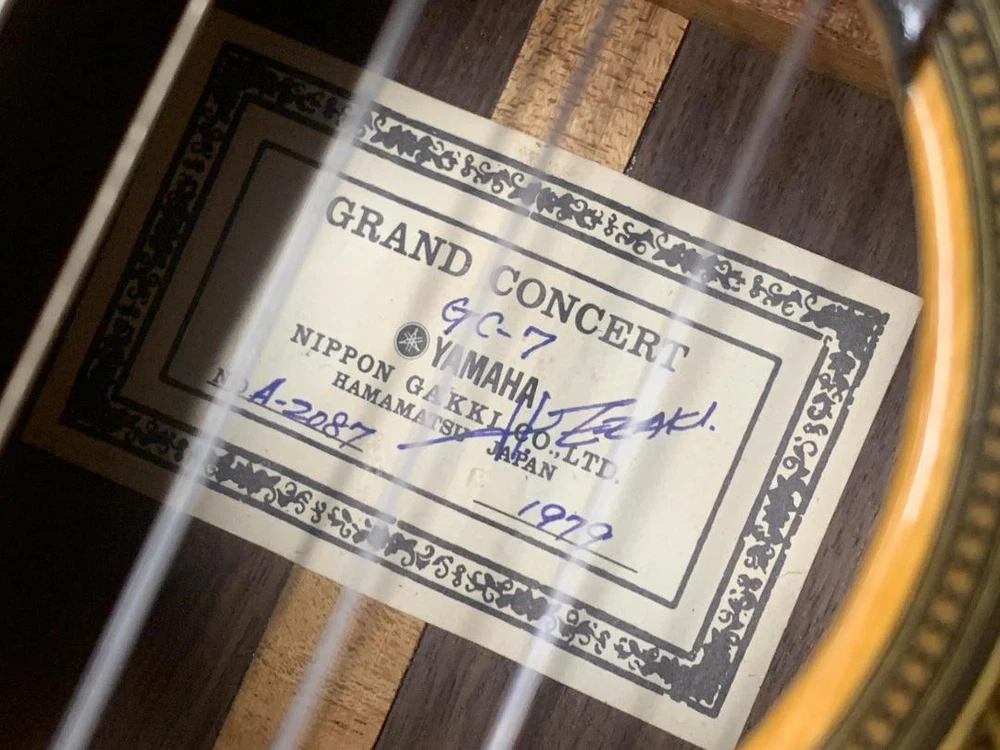 GRAND CONCERT
GC-7
YAMAHA
NIPPON GAKKI CO., LTD.
HAMAMATSU JAPAN
NO. A-2087
H. Ezaki.
1979